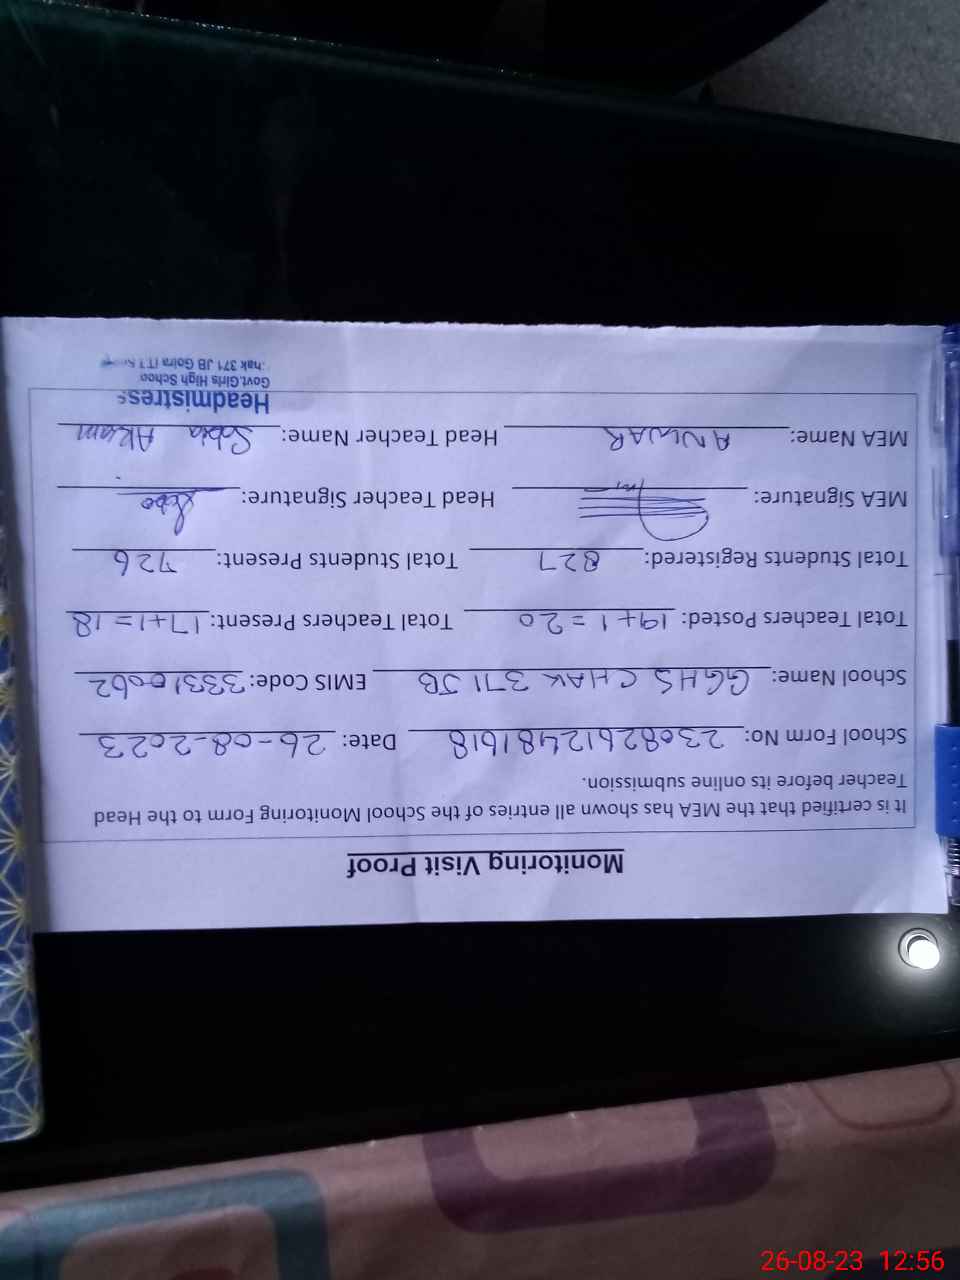 Monitoring Visit Proof
It is certified that the MEA has shown all entries of the School Monitoring Form to the Head
Teacher before its online submission.
School Form No: 23082612481618 Date: 26-08-2023
School Name: GGHS CHAK 371 JB EMIS Code: 33310062
Total Teachers Posted: 19+1=20 Total Teachers Present: 17+1=18
Total Students Registered: 827 Total Students Present: 726
MEA Signature: Head Teacher Signature:
MEA Name: ANWAR Head Teacher Name: Sobia Akram
Headmistress
Govt.Girls High Schoo
hak 371 JB Gojra (T.T
26-08-23 12:56